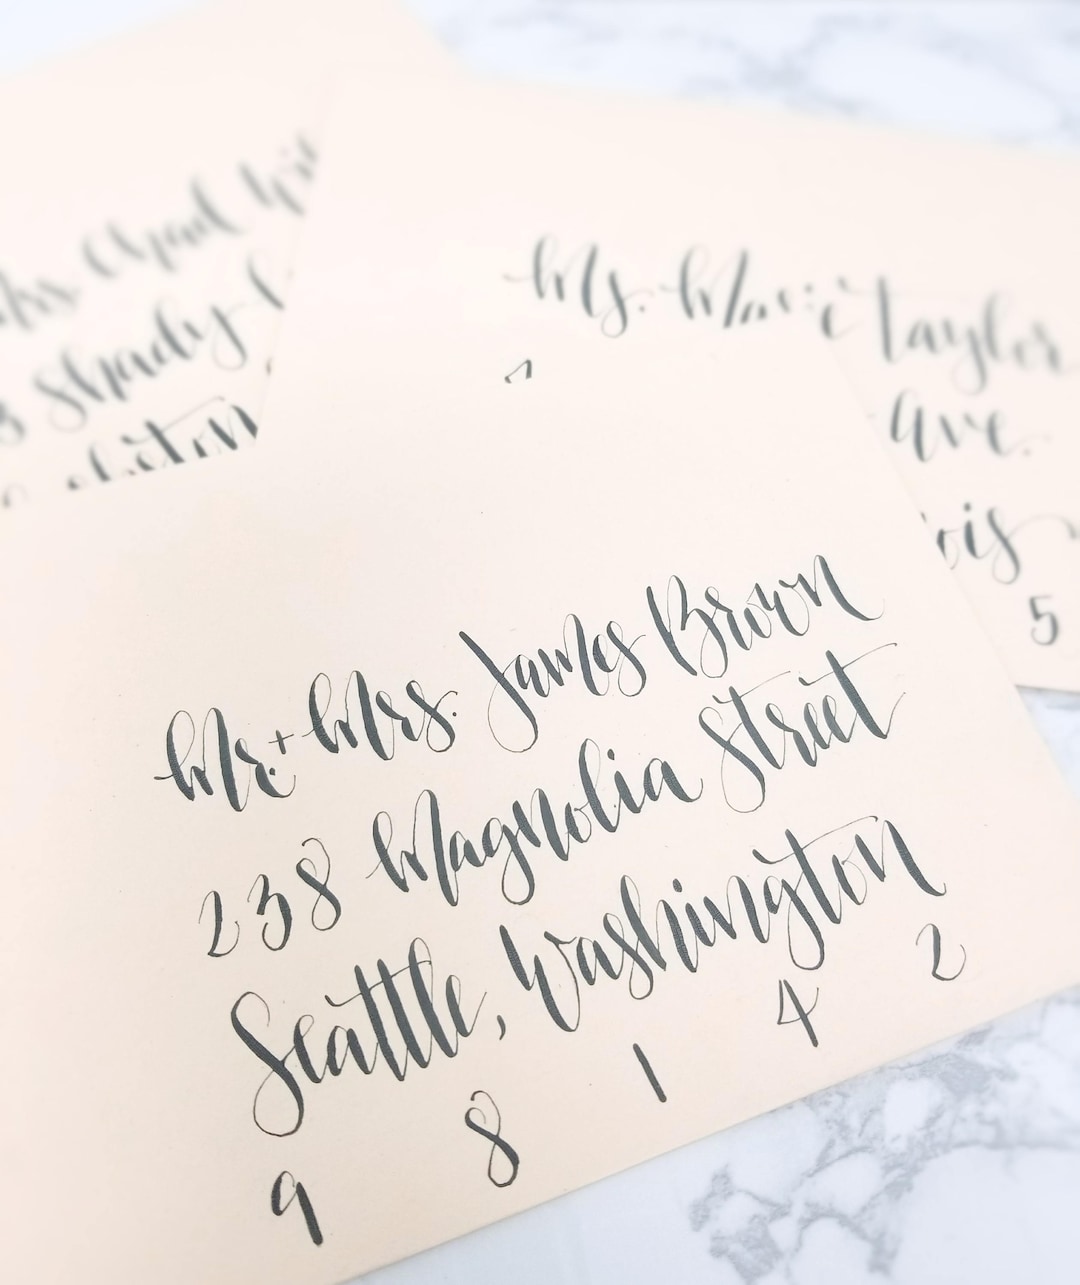 Mrs Chad
Shady
Ms. Taylor
Ave.
5
Mr. + Mrs. James Brown
238 Magnolia Street
Seattle, Washington
9 8 1 4 2